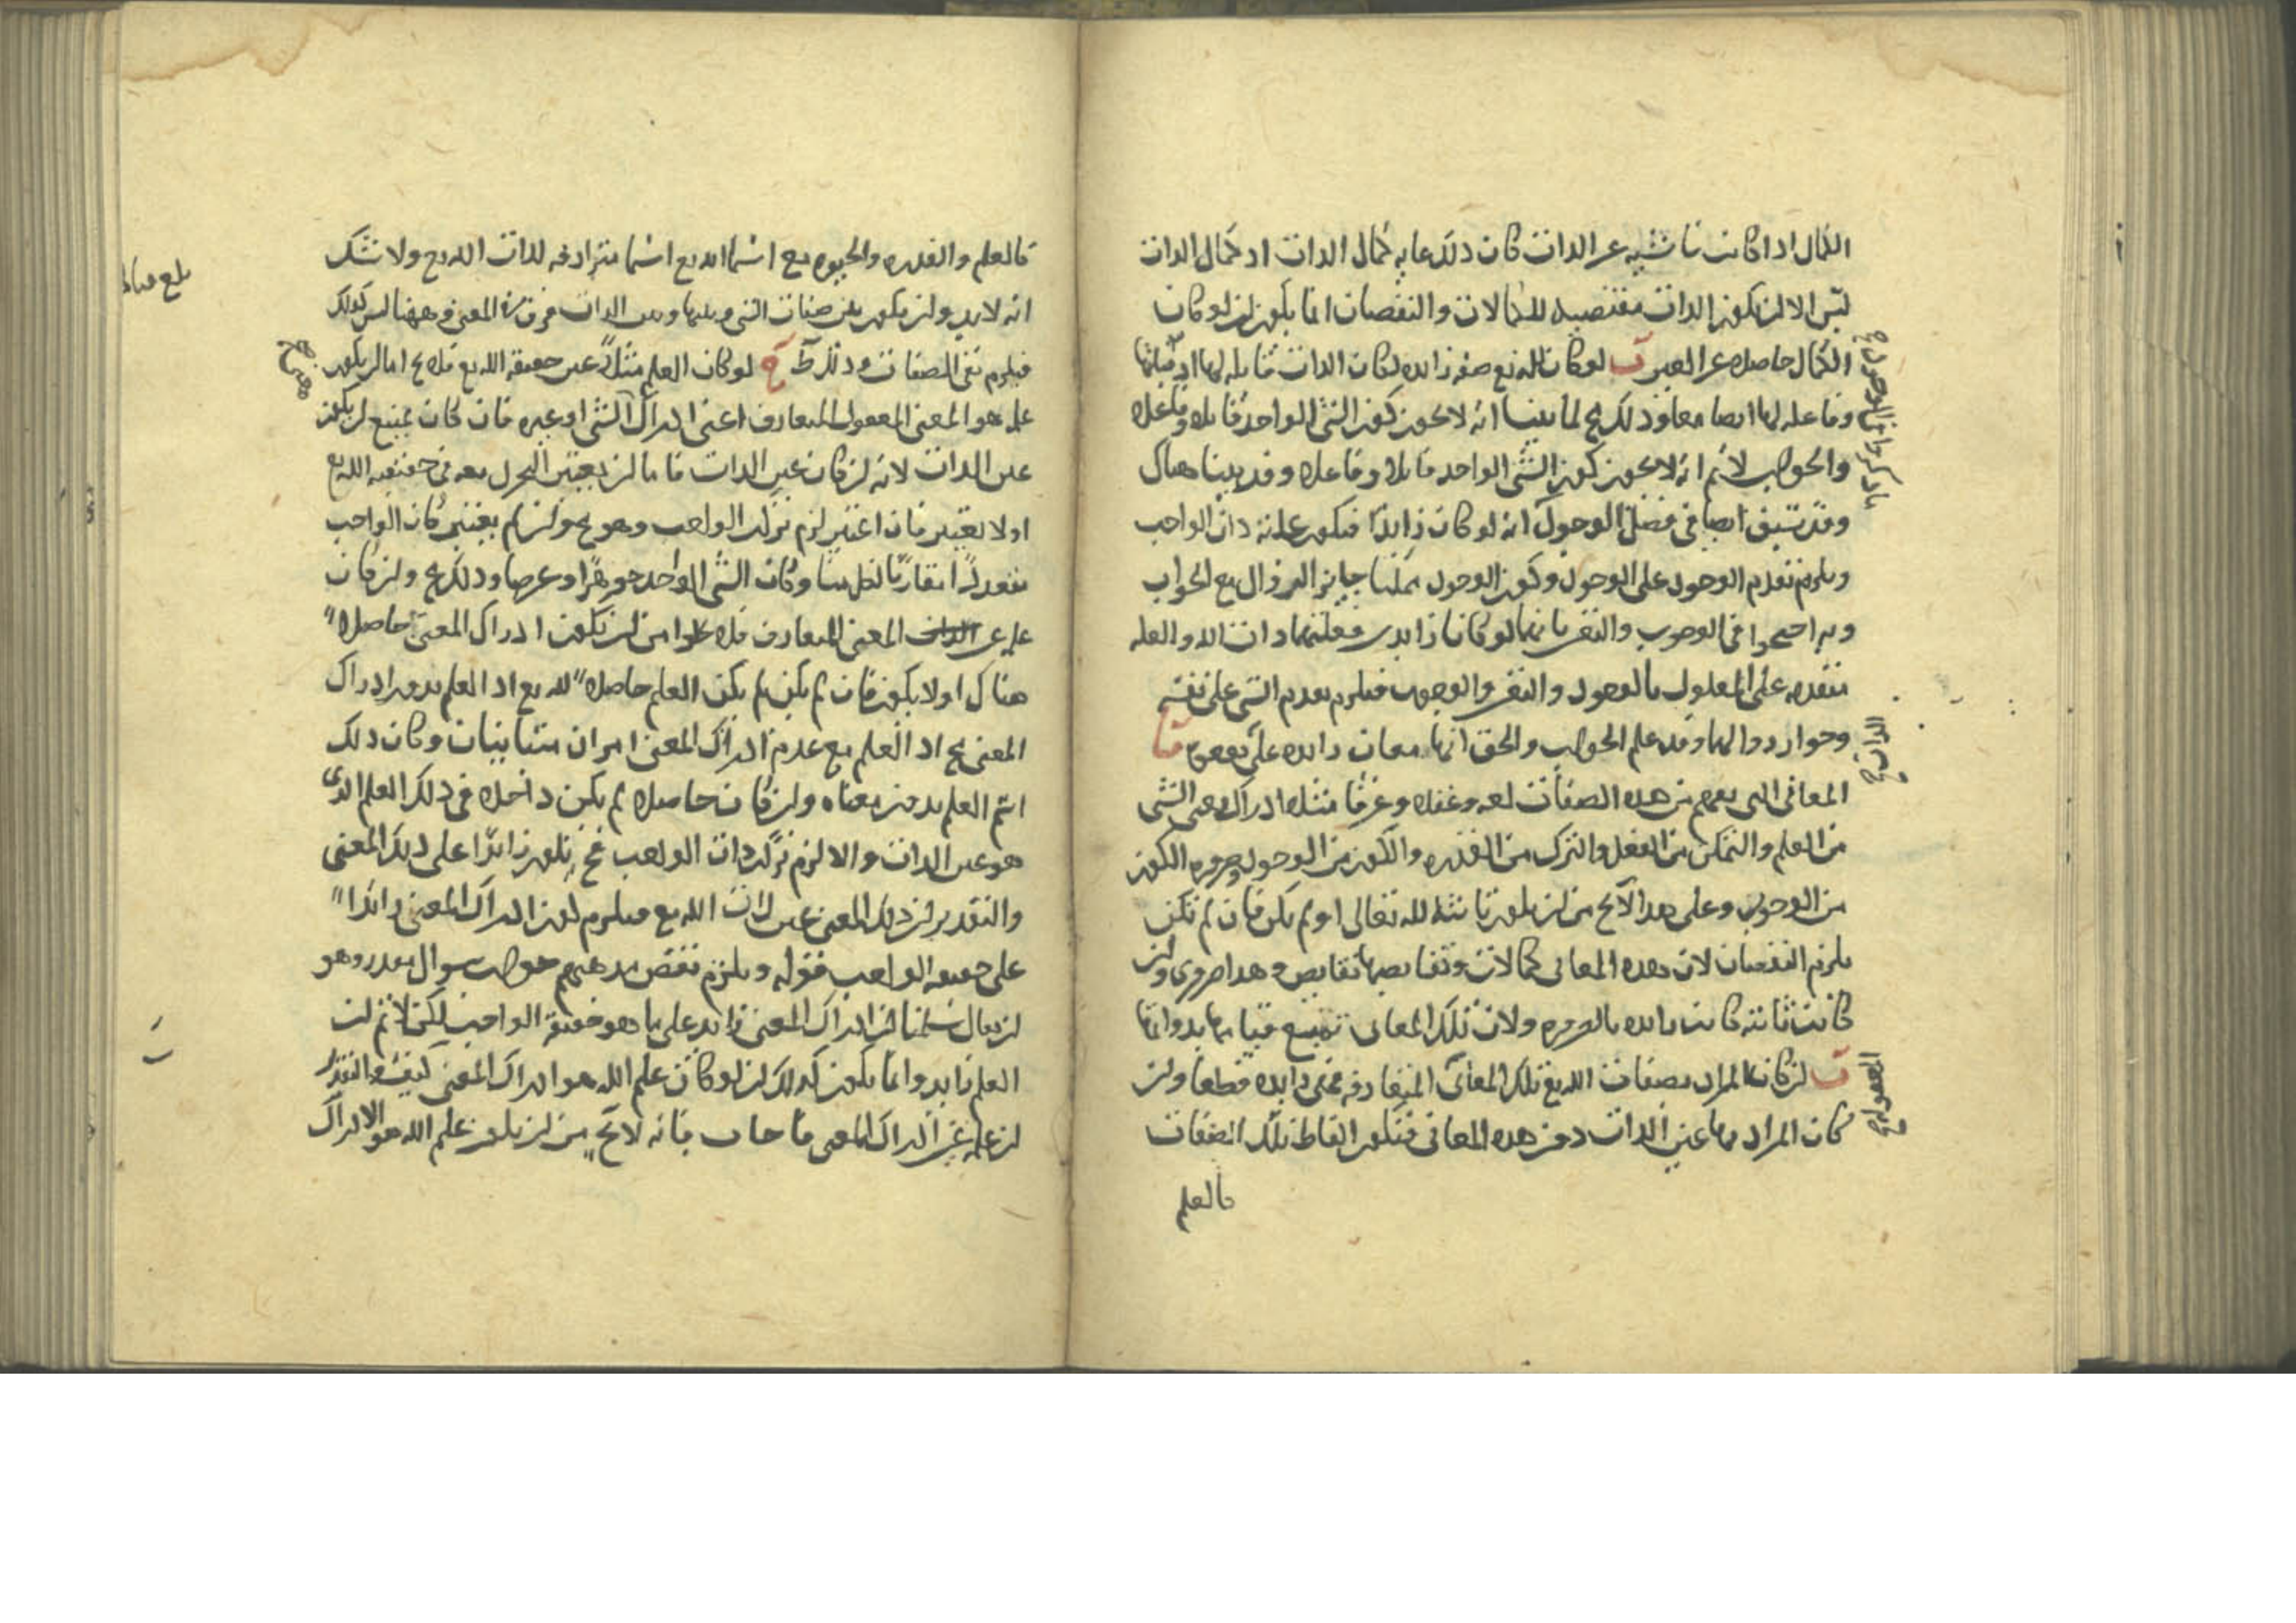 الكمال اذا كانت ناشئيه عن الذات كان ذلك غايه كمال الذات اذ كمال الذات
ليس الا لن يكون الذات مقتضيه للكمالات والنقصان انما يكون لن لو كان
الكمال حاصله عن الغير ب لو كان لله تع صفه زايده لكان الذات قابله لها اذ قبلتها
وفاعله لها ايضا معا وذلك مح لما بينا انه لا يجوز كون الشى الواحد قابلا وفاعله
والجواب لانم انه لا يجوز كون الشى الواحد قابلا وفاعله وقد بينا هناك
وقد سبق ايضا فى فصل الوجود انه لو كان زايدًا فيكون علته ذات الواجب
ويلزم تقدم الوجود على الوجود وكون الوجود ممكنا جايز الزوال مع الجواب
وبه احتجوا فى الوجوب والتعين بانهما لو كانا زايدين فعلتهما ذات الله والعله
متقدمه على المعلول بالوجود والتعين والوجوب فيلزم تقدم الشى على نفسه
وجواز زوالها وقد علم الجواب والحق انها معان زايده على
المعانى التى تفهم من هذه الصفات لغه وعقلا وعرفا مثلا ادراك معنى الشى
من العلم والتمكن من الفعل والترك من القدره والكون من الوجود وضروره الكون
من الوجوب وعلى هذا لا يخ من لن يكون ثابته لله تعالى او لم يكن فان لم تكن
يلزم النقصان لان هذه المعانى كمالات ونقايضها نقايص وهذا ضرورى ولن
كانت ثابته كانت زايده بالضروره ولان تلك المعانى تمتنع قيامها بذواتها
ب لن كان المراد بصفات الله تع تلك المعانى المتعارفه فهى زايده قطعا ولن
كان المراد بها عين الذات دون هذه المعانى فتكون الفاظ تلك الصفات
كالعلم
الذات
كالعلم والقدره والحيوه مع اسما الله تع اسما مترادفه لذات الله تع ولا شك
انه لا بد ولن يكون بين صفات الشى وبينها وبين الذات فرق فى المعنى وههنا ليس كذلك
فيلزم نفى الصفات وذلك ط ج لو كان العلم مثلاً عين حقيقه الله تع فلا يخ اما لن يكون
علمه هو المعنى المعقول المتعارف اعنى ادراك الشى او غيره فان كان يمتنع لن يكون
عين الذات لانه لن كان عين الذات فاما لن يعتبر التجرد معه فى حقيقه الله تع
او لا يعتبر فان اعتبر لزم تركب الواجب وهو مح ولن لم يعتبر كان الواجب
متعددًا مقارنًا لكل منا وكان الشى الواحد جوهرًا وعرضا وذلك مح ولن كان
علمه غير المعنى المتعارف فلا يخلوا من لن يكون ادراك المعنى حاصلا
هناك اولا يكون فان لم يكن لم يكن العلم حاصلا لله تع اذ العلم بدون ادراك
المعنى مح اذ العلم مع عدم ادراك المعنى امران متنافيان وكان ذلك
اسم العلم بدون معناه ولن كان حاصلا لم يكن داخلا فى ذلك العلم الذى
هو عين الذات والا لزم تركب ذات الواجب فح يكون زائدًا على ذلك المعنى
والتقدير لن ذلك المعنى عين ذات الله تع فيلزم كون ادراك المعنى زائدا
على حقيقه الواجب فقوله ويلزم نقض مذهبهم جواب سوال مقدر وهو
لن يقال سلمنا لن ادراك المعنى زايد على ما هو حقيقة الواجب لكن لانم لن
العلم زايد وانما يكون كذلك لن لو كان علم الله هو ادراك المعنى كيف والتقدير
لن علمه غير ادراك المعنى فاجاب بانه لا يخ من لن يكون علم الله هو الادراك